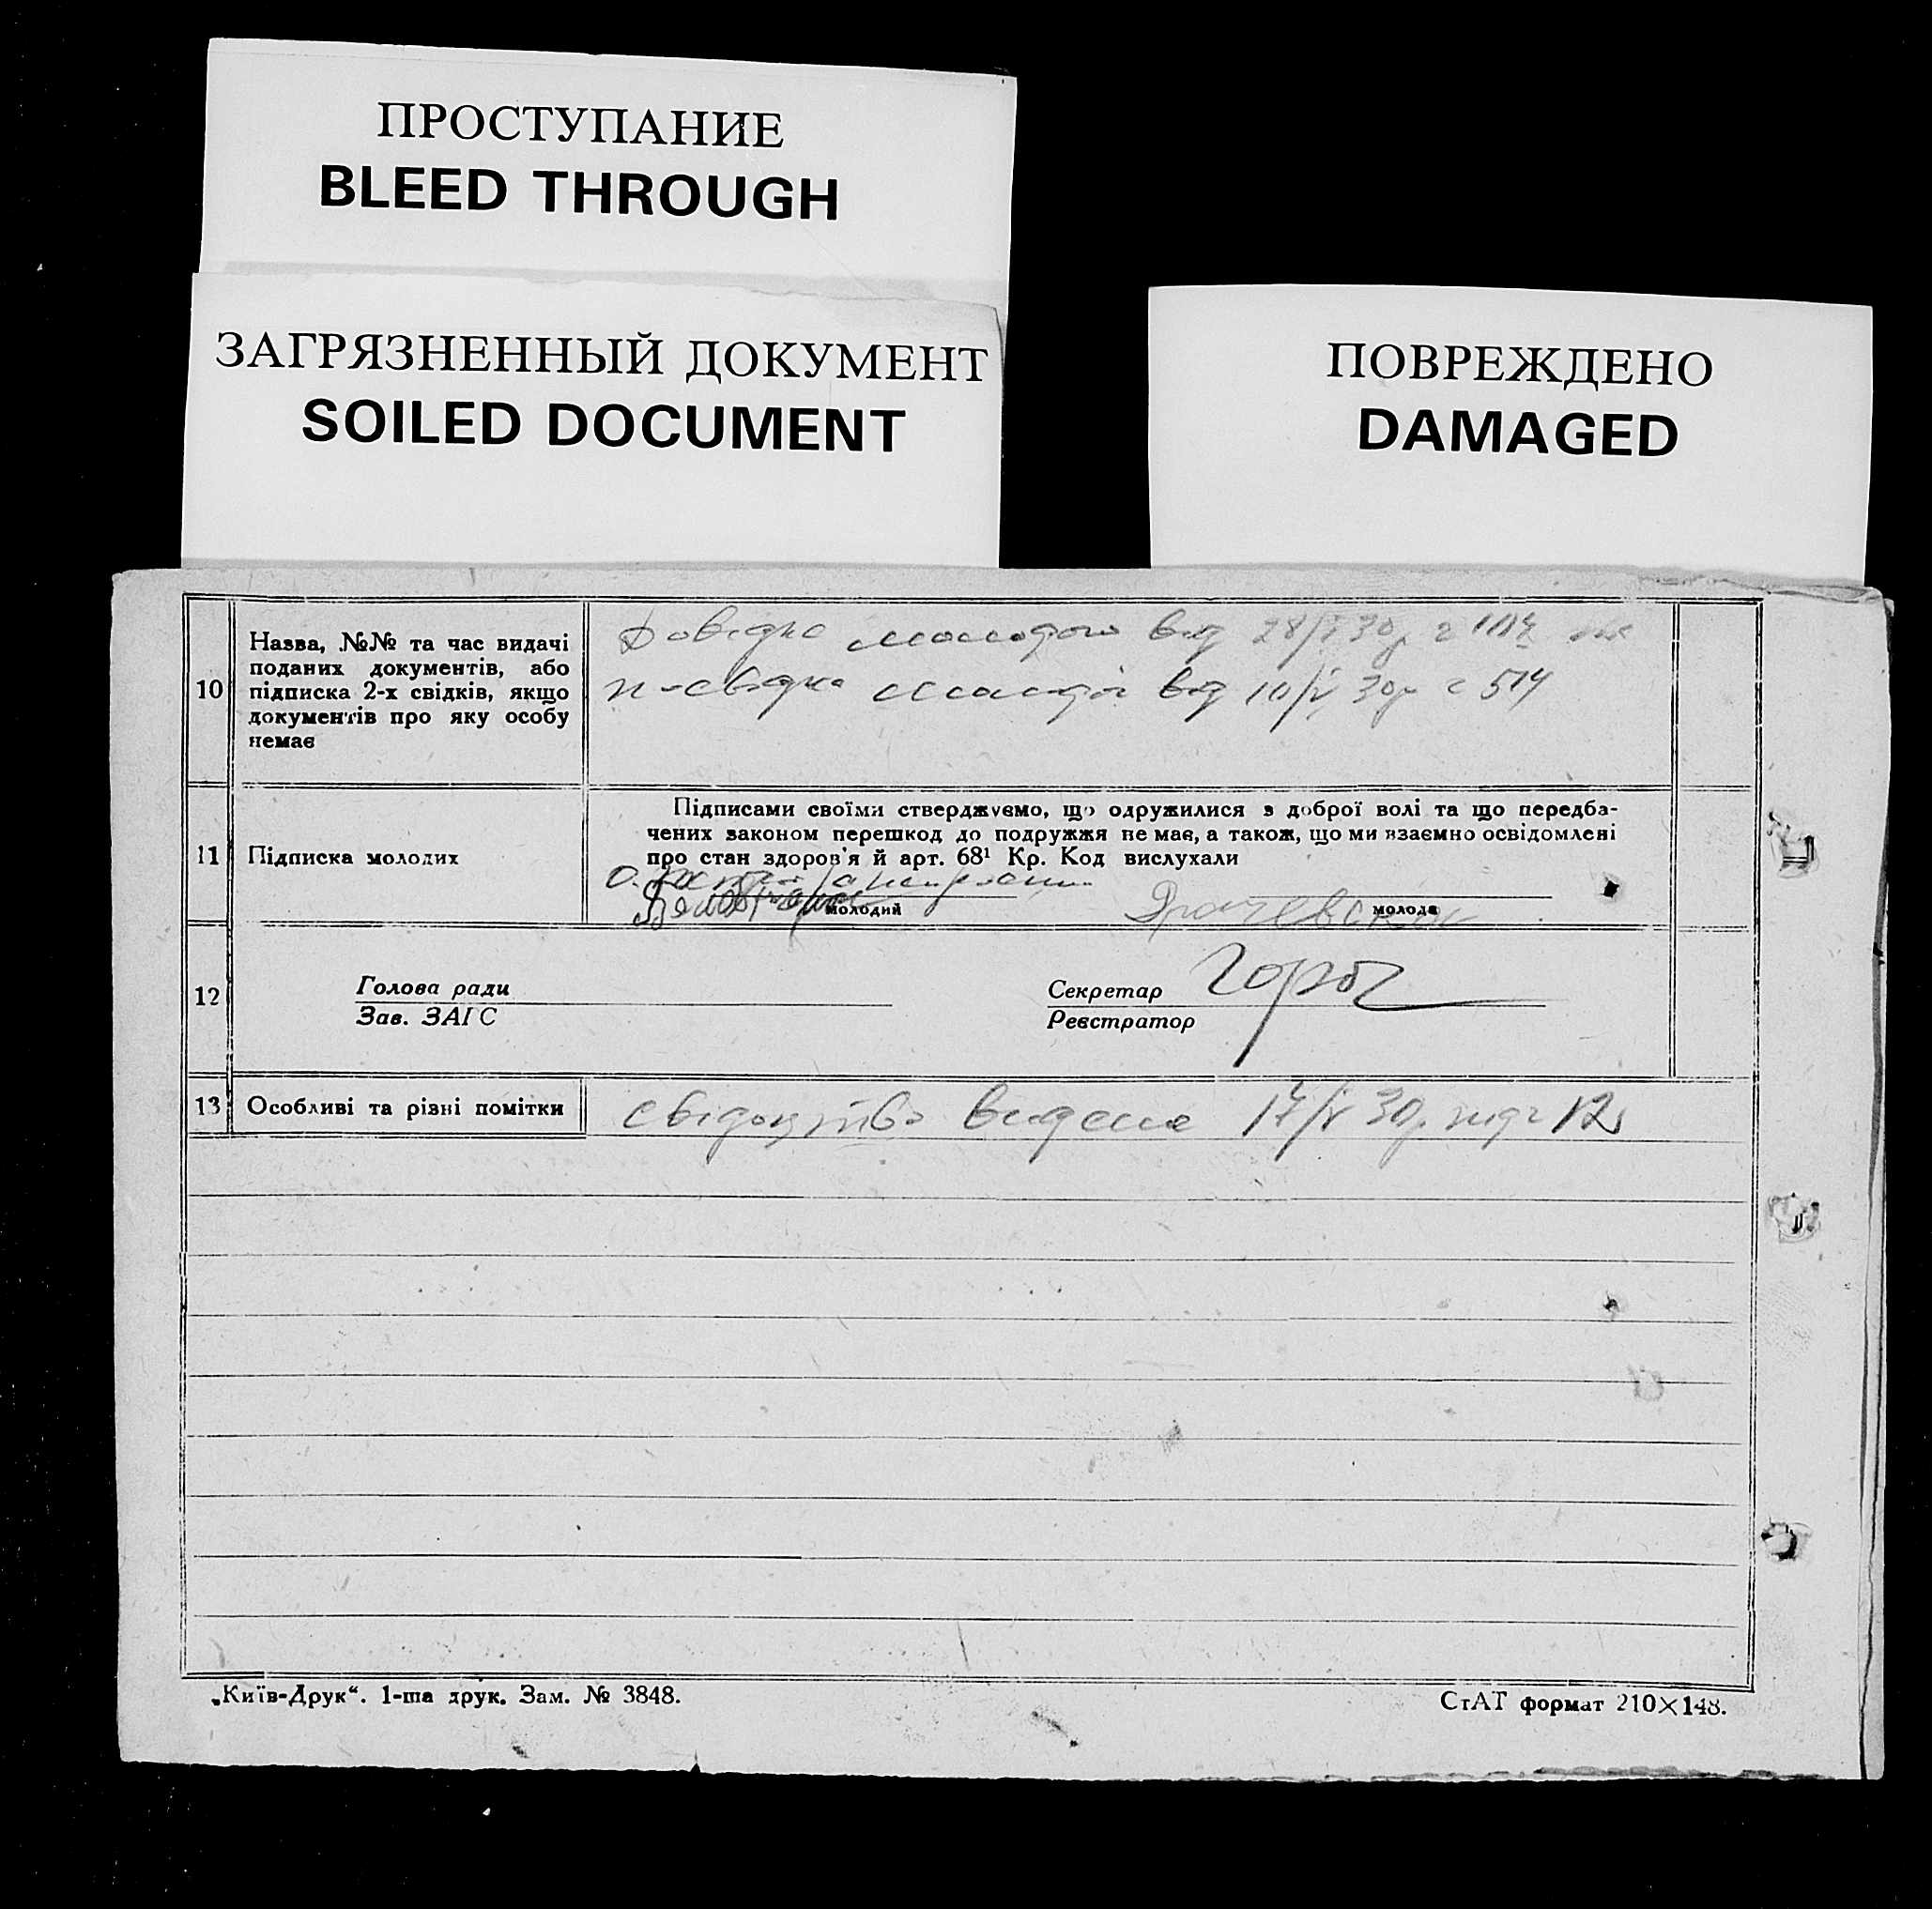 ПРОСТУПАНИЕ
BLEED THROUGH
ЗАГРЯЗНЕННЫЙ ДОКУМЕНТ
SOILED DOCUMENT
ПОВРЕЖДЕНО
DAMAGED
10
Назва, №№ та час видачі
поданих документів, або
підписка 2-х свідків, якщо
документів про яку особу
немає
Довідка молодого від 28/ 30р
довідка молодої від 10/V 30р 514
11
Підписка молодих
Підписами своїми стверджуємо, що одружилися з доброї волі та що передба-
чених законом перешкод до подружжя не має, а також, що ми взаємно освідомлені
про стан здоров'я й арт. 68¹ Кр. Код вислухали
молодий
молода
12
Голова ради
Зав. ЗАГС
Секретар
Реєстратор
13
Особливі та різні помітки
Свідоцтво видане 17/V 30р
„Київ-Друк“. 1-ша друк. Зам. № 3848.
СтАТ формат 210×148.